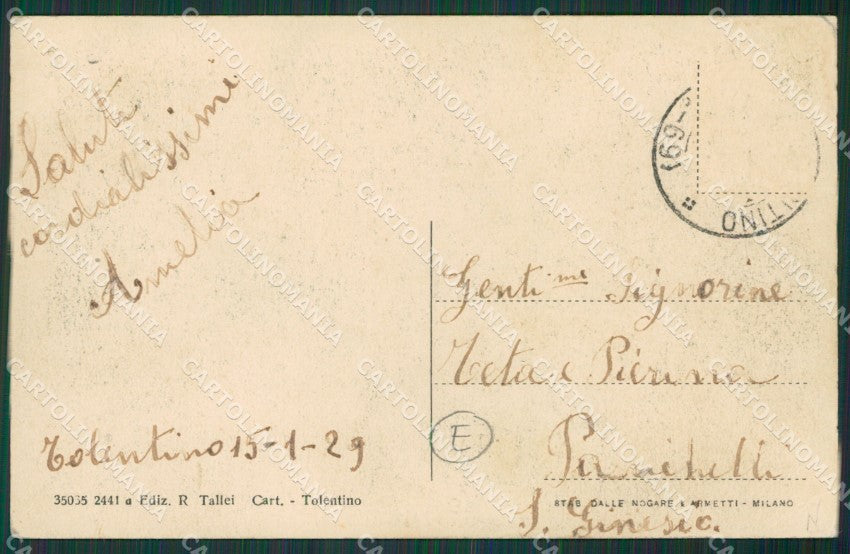 Saluti
cordialissimi
Amelia
Tolentino 15-1-29
35035 2441 a Ediz. R Tallei Cart. - Tolentino
Genti.me Signorine
Teta e Pierina
S. Ginesio
STAB. DALLE NOGARE E ARMETTI - MILANO
E
CARTOLINOMANIA